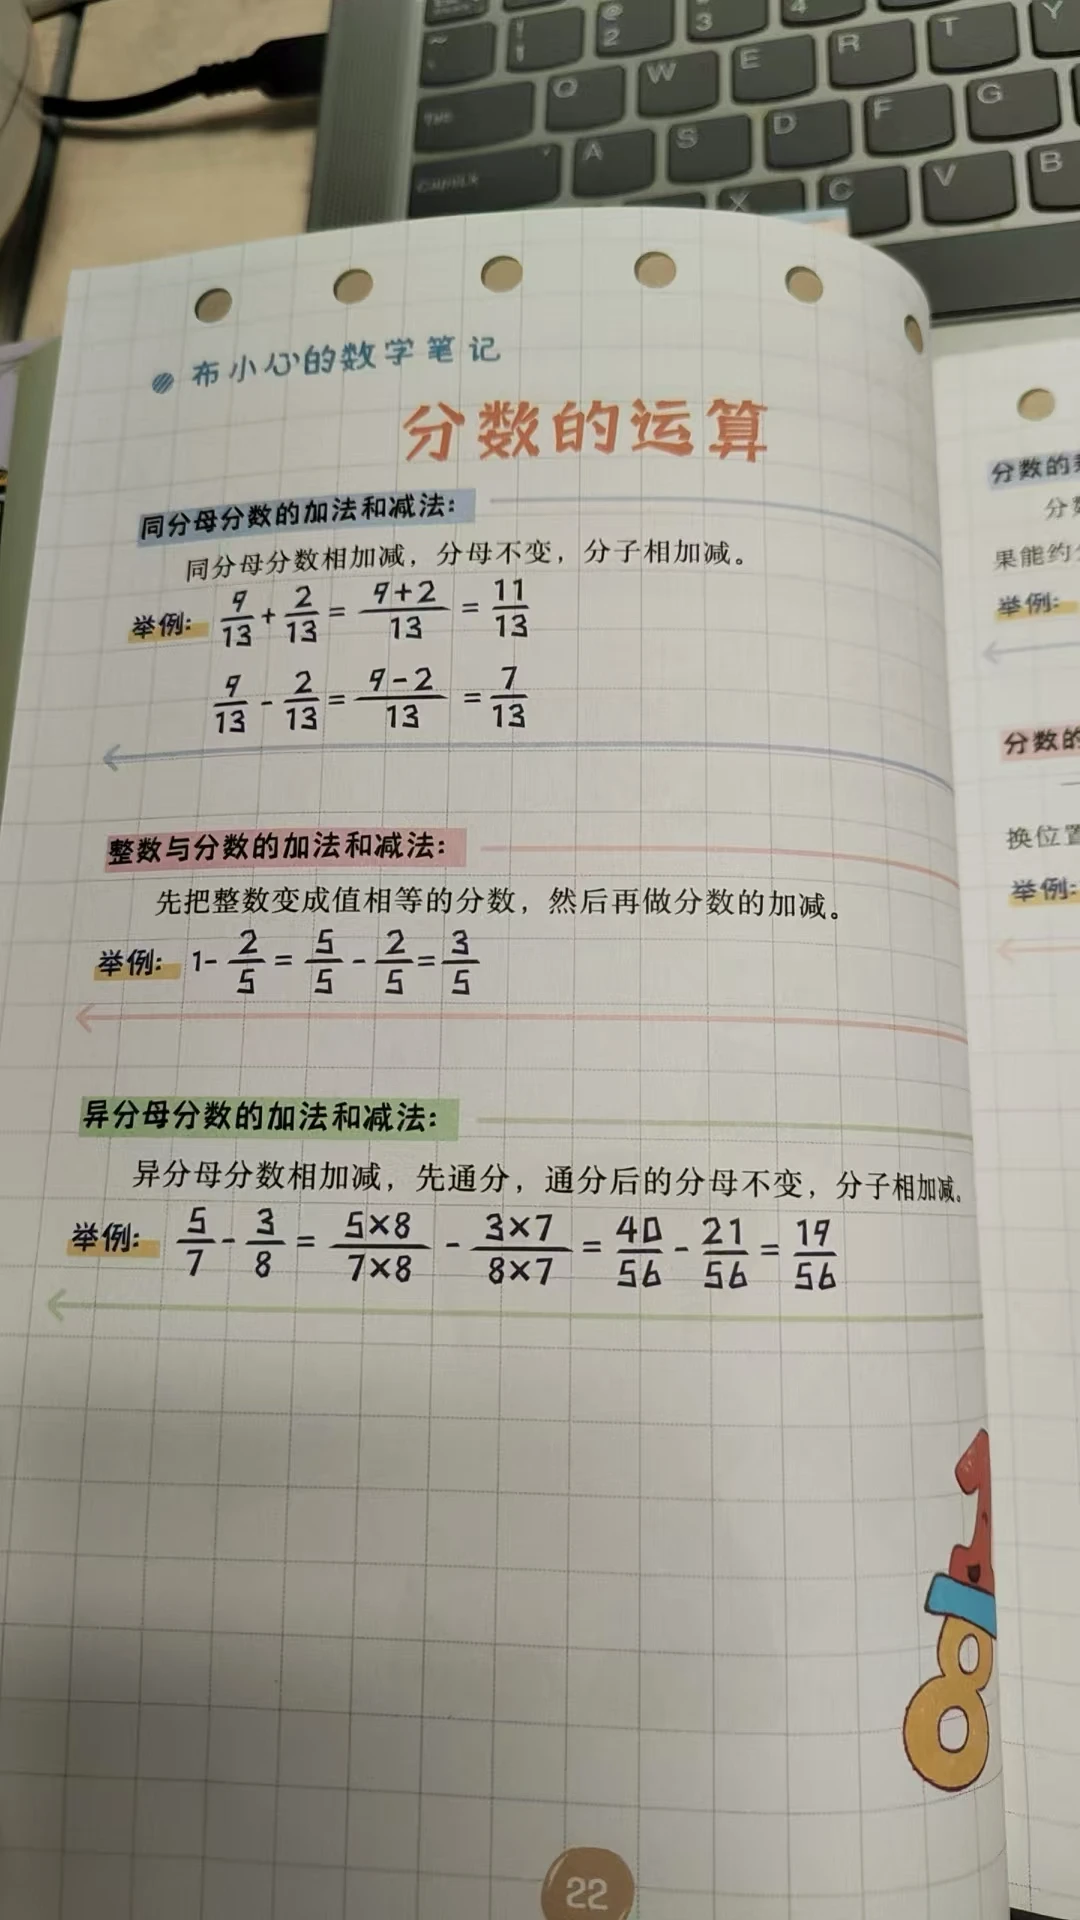 ~
!
1
@
2
3
4
Q
W
E
R
T
Y
A
S
D
F
G
X
C
V
B
布小心的数学笔记
分数的运算
同分母分数的加法和减法:
同分母分数相加减，分母不变，分子相加减。
举例: 9/13 + 2/13 = (9+2)/13 = 11/13
9/13 - 2/13 = (9-2)/13 = 7/13
整数与分数的加法和减法:
先把整数变成值相等的分数，然后再做分数的加减。
举例: 1 - 2/5 = 5/5 - 2/5 = 3/5
异分母分数的加法和减法:
异分母分数相加减，先通分，通分后的分母不变，分子相加减。
举例: 5/7 - 3/8 = (5×8)/(7×8) - (3×7)/(8×7) = 40/56 - 21/56 = 19/56
1
8
22
分数的
分
果能约
举例:
分数的
换位置
举例: